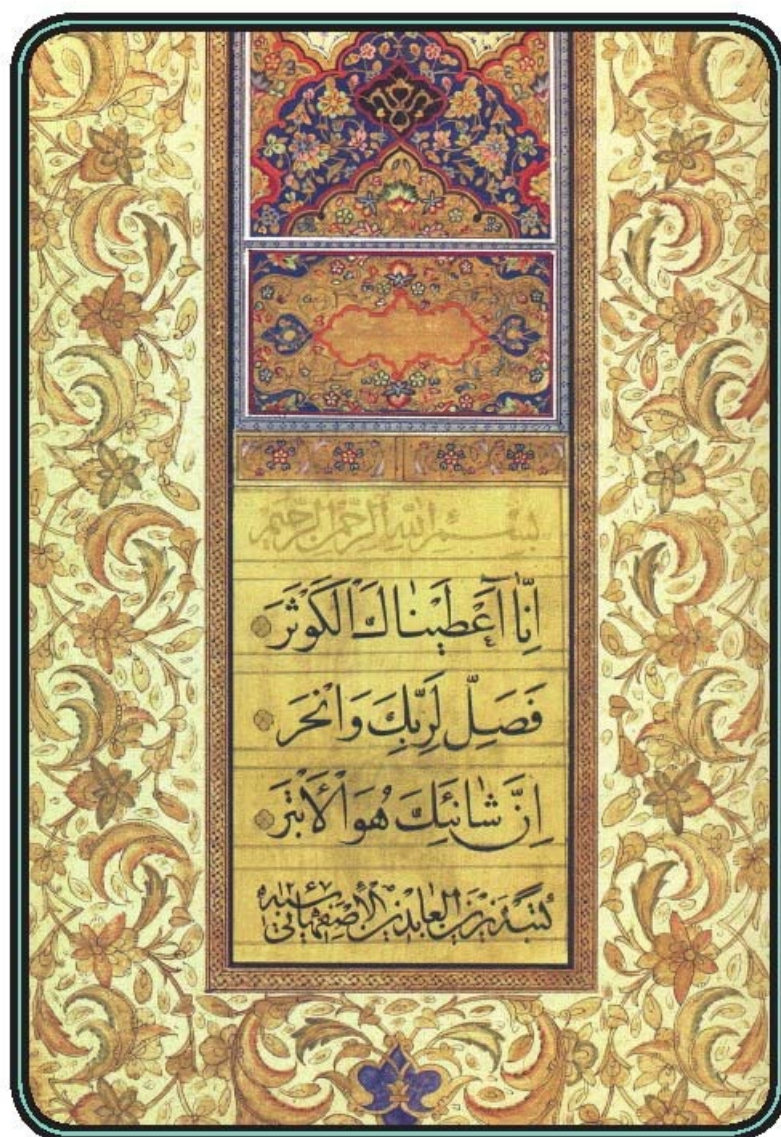 بِسْمِ اللهِ الرَّحْمٰنِ الرَّحِیْمِ
اِنَّا آَعْطَیْنٰاكَ الْكَوْثَرَ
فَصَلِّ لِرَبِّكَ وَانْحَرْ
اِنَّ شٰانِئَكَ هُوَ الْأَبْتَرُ
كتبه زین العابدین الأصفهانی سنه